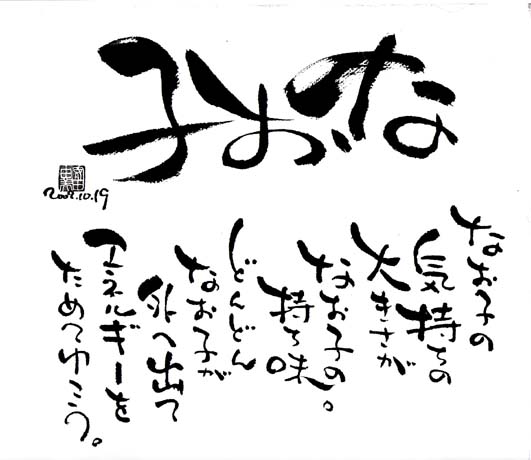 なお子
2002.10.19
なお子の
気持ちの
大きさが
なお子の
持ち味。
どんどん
なお子が
外へ出て
エネルギーを
ためてゆこう。